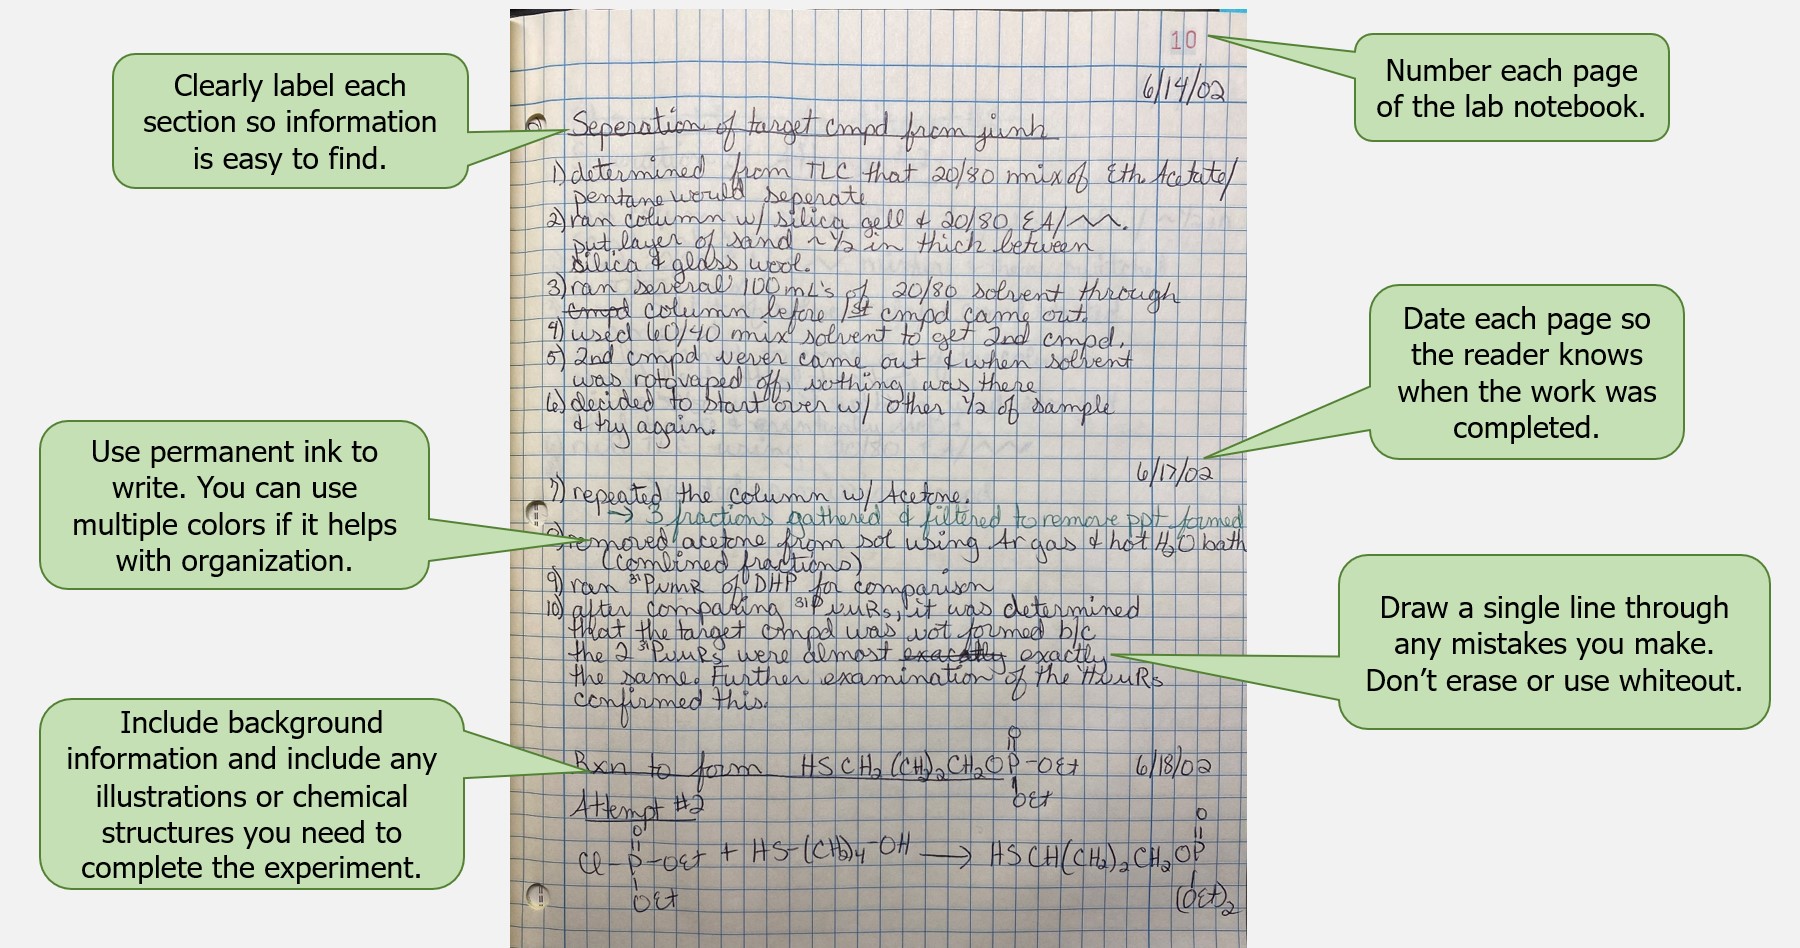 Clearly label each
section so information
is easy to find.
Use permanent ink to
write. You can use
multiple colors if it helps
with organization.
Include background
information and include any
illustrations or chemical
structures you need to
complete the experiment.
10
6/14/02
Seperation of target cmpd from junk
1) determined from TLC that 20/80 mix of Eth. Acetate/
pentane would seperate
2) ran column w/ silica gell & 20/80 EA/
put layer of sand ~ 1/2 in thick between
silica & glass wool.
3) ran several 100mL's of 20/80 solvent through
cmpd column before 1st cmpd came out.
4) used 60/40 mix solvent to get 2nd cmpd.
5) 2nd cmpd never came out & when solvent
was rotovaped off, nothing was there
6) decided to start over w/ other 1/2 of sample
& try again.
6/17/02
7) repeated the column w/ Acetone.
→ 3 fractions gathered & filtered to remove ppt formed
8) removed acetone from sol using Ar gas & hot H2O bath
(combined fractions)
9) ran 31P NMR of DHP for comparison
10) after comparing 31P NMRs, it was determined
that the target cmpd was not formed b/c
the 2 31P NMRs were almost exactly
the same. Further examination of the HNMRs
confirmed this.
Rxn to form HSCH2(CH2)2CH2OP-OEt 6/18/02
O
OEt
Attempt #2
O
Cl-P-OEt + HS-(CH2)4-OH → HSCH(CH2)2CH2OP
OEt
O
(OEt)2
Number each page
of the lab notebook.
Date each page so
the reader knows
when the work was
completed.
Draw a single line through
any mistakes you make.
Don't erase or use whiteout.